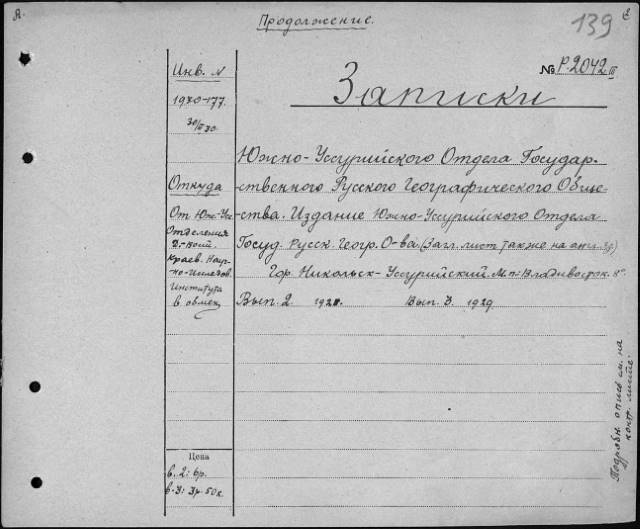 А.
Продолжение.
139
Инв. №
1970-177.
№ Р.2042 III
Записки
Южно-Уссурийского Отдела Государ-
ственного Русского Географического Обще-
ства. Издание Южно-Уссурийского Отдела
Госуд. Русск. Геогр. О-ва. (Загл. лист также на англ. яз.)
Гор. Никольск-Уссурийский.
Вып. 2. Вып. 3. 1929
Откуда
От Южн-Ус.
Отделения
Д.-Вост.
Краев. Науч-
Института
в обмен
Цена
в. 2: 6р.
в. 3: 3р. 50к.
Подробн. опис. см. на
контр. листе.